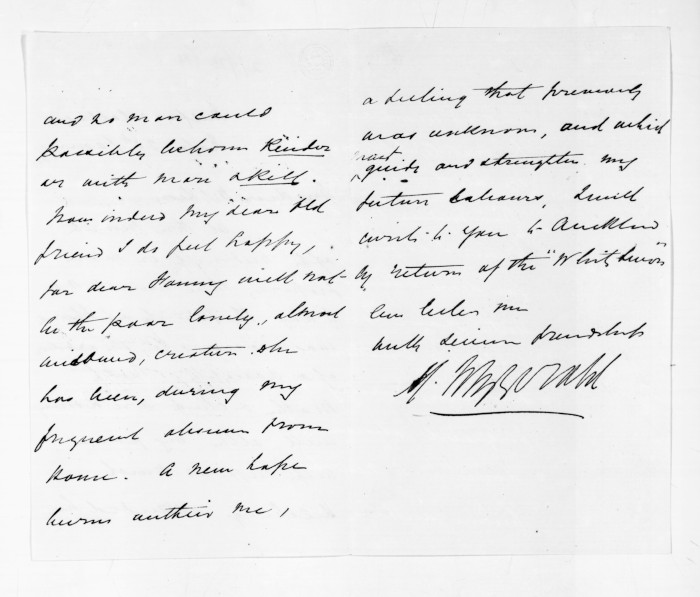 and no man could
possibly behave kinder
or with more skill.
Now indeed my "dear old
friend I do feel happy,
for dear Fanny will not
be the poor lonely, almost
widowed, creature she
has been, during my
frequent absence from
home. A new hope
burns within me,
a feeling that previously
was unknown, and which
must
guide and strengthen my
future labours. I will
write to you to Auckland
by return of the "White Swan"
believe me
with sincere friendship